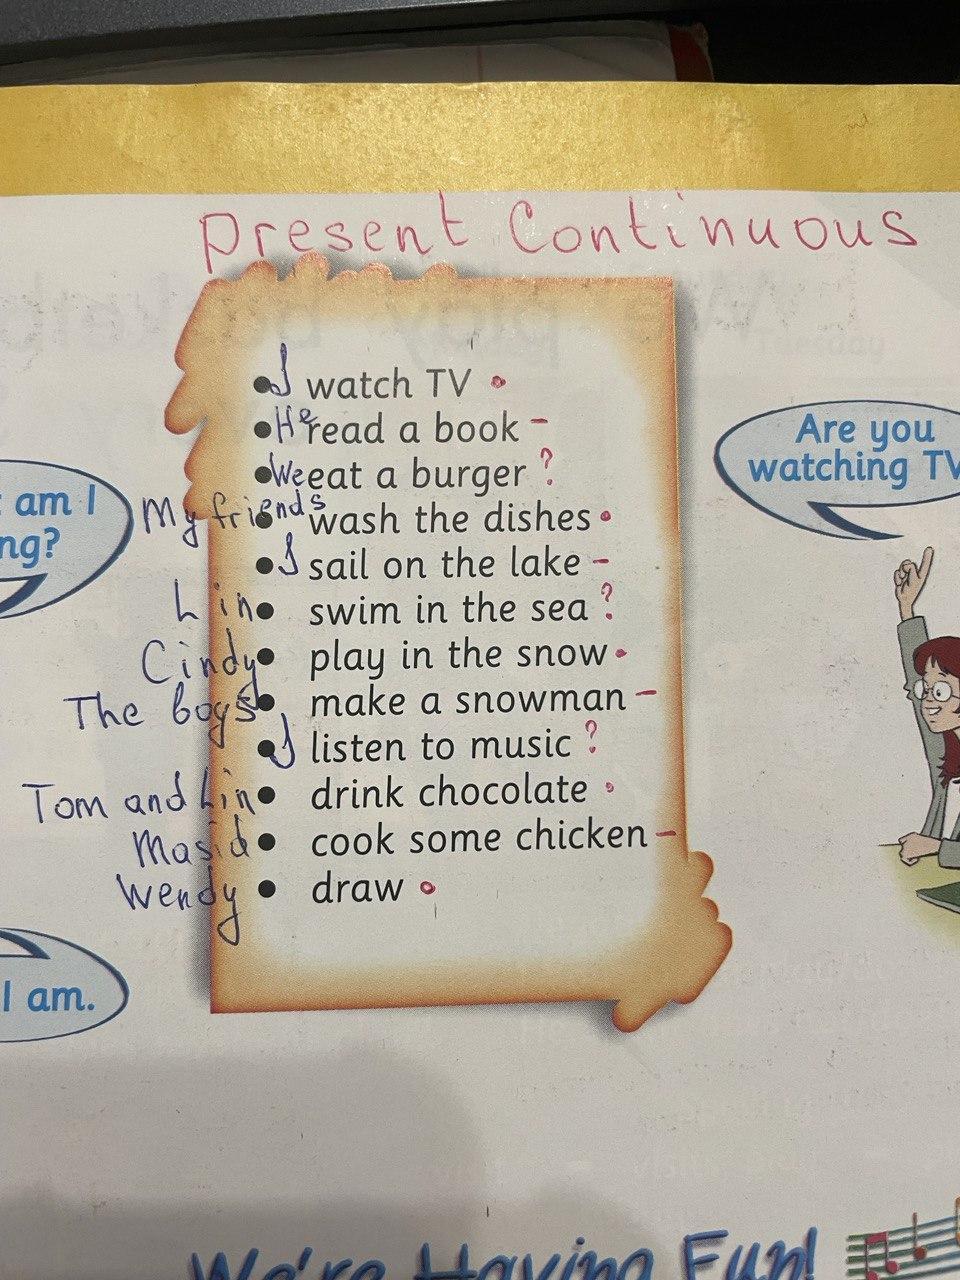 Present Continuous
I watch TV .
He read a book -
We eat a burger ?
My friends wash the dishes .
I sail on the lake -
Lin swim in the sea ?
Cindy play in the snow .
The boys make a snowman -
I listen to music ?
Tom and Lin drink chocolate .
Masid cook some chicken -
Wendy draw .
am I
ng?
I am.
Are you
watching TV
We're Having Fun!